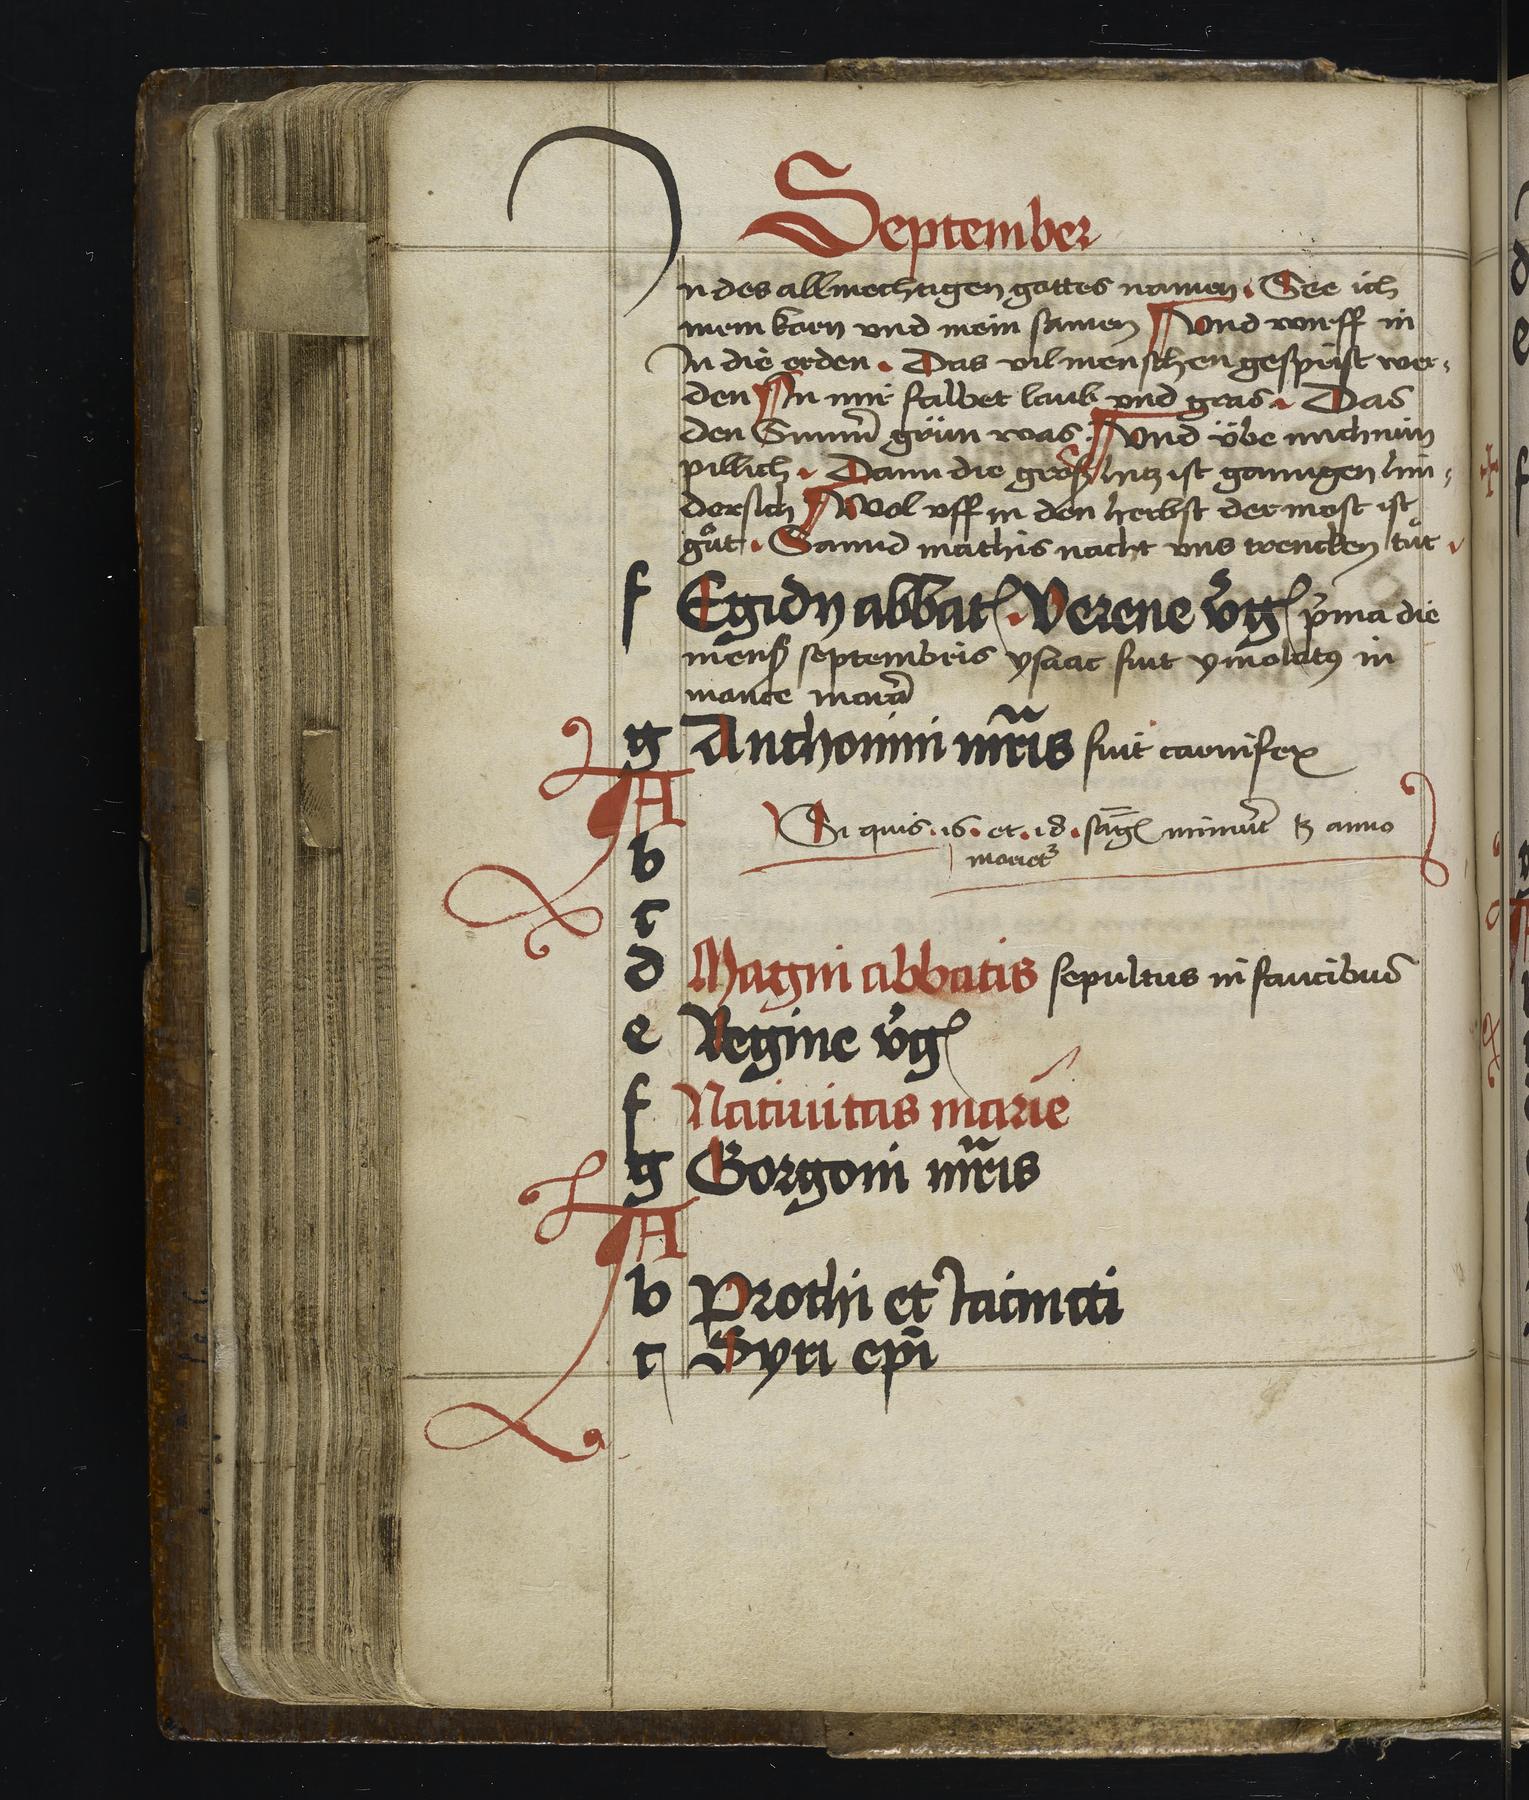 September
In des allmechtigen gottes namen. See ich
mein korn vnd mein samen Vnd würff in
In die erden. Das vil menschen gespeist wer-
den In mir falbet laub vnd gras. Das
den Sum̅ grün was. Vnd übe mich nun
pillich. Dann die groß hitz ist ganngen hin-
dersich Wol vff in den herbst der most ist
gůt. Sannd mathis nacht vns trencken tůt
f Egidy abbat. Verene v̓g p̓ma die
mens septembris ysaac fuit ymolatꝯ in
monte mor̃
g Anthonini mr̃is fuit carnifex
A
Si quis. 16. et. 18. sāg̃ minuerit
b
moriet̃
c
d Magni abbatis sepultus in faucibus
e Regine v̓g
f Natiuitas marie
g Gorgoni mr̃is
A
b Prothi et Iacincti
c Syri ep̄i